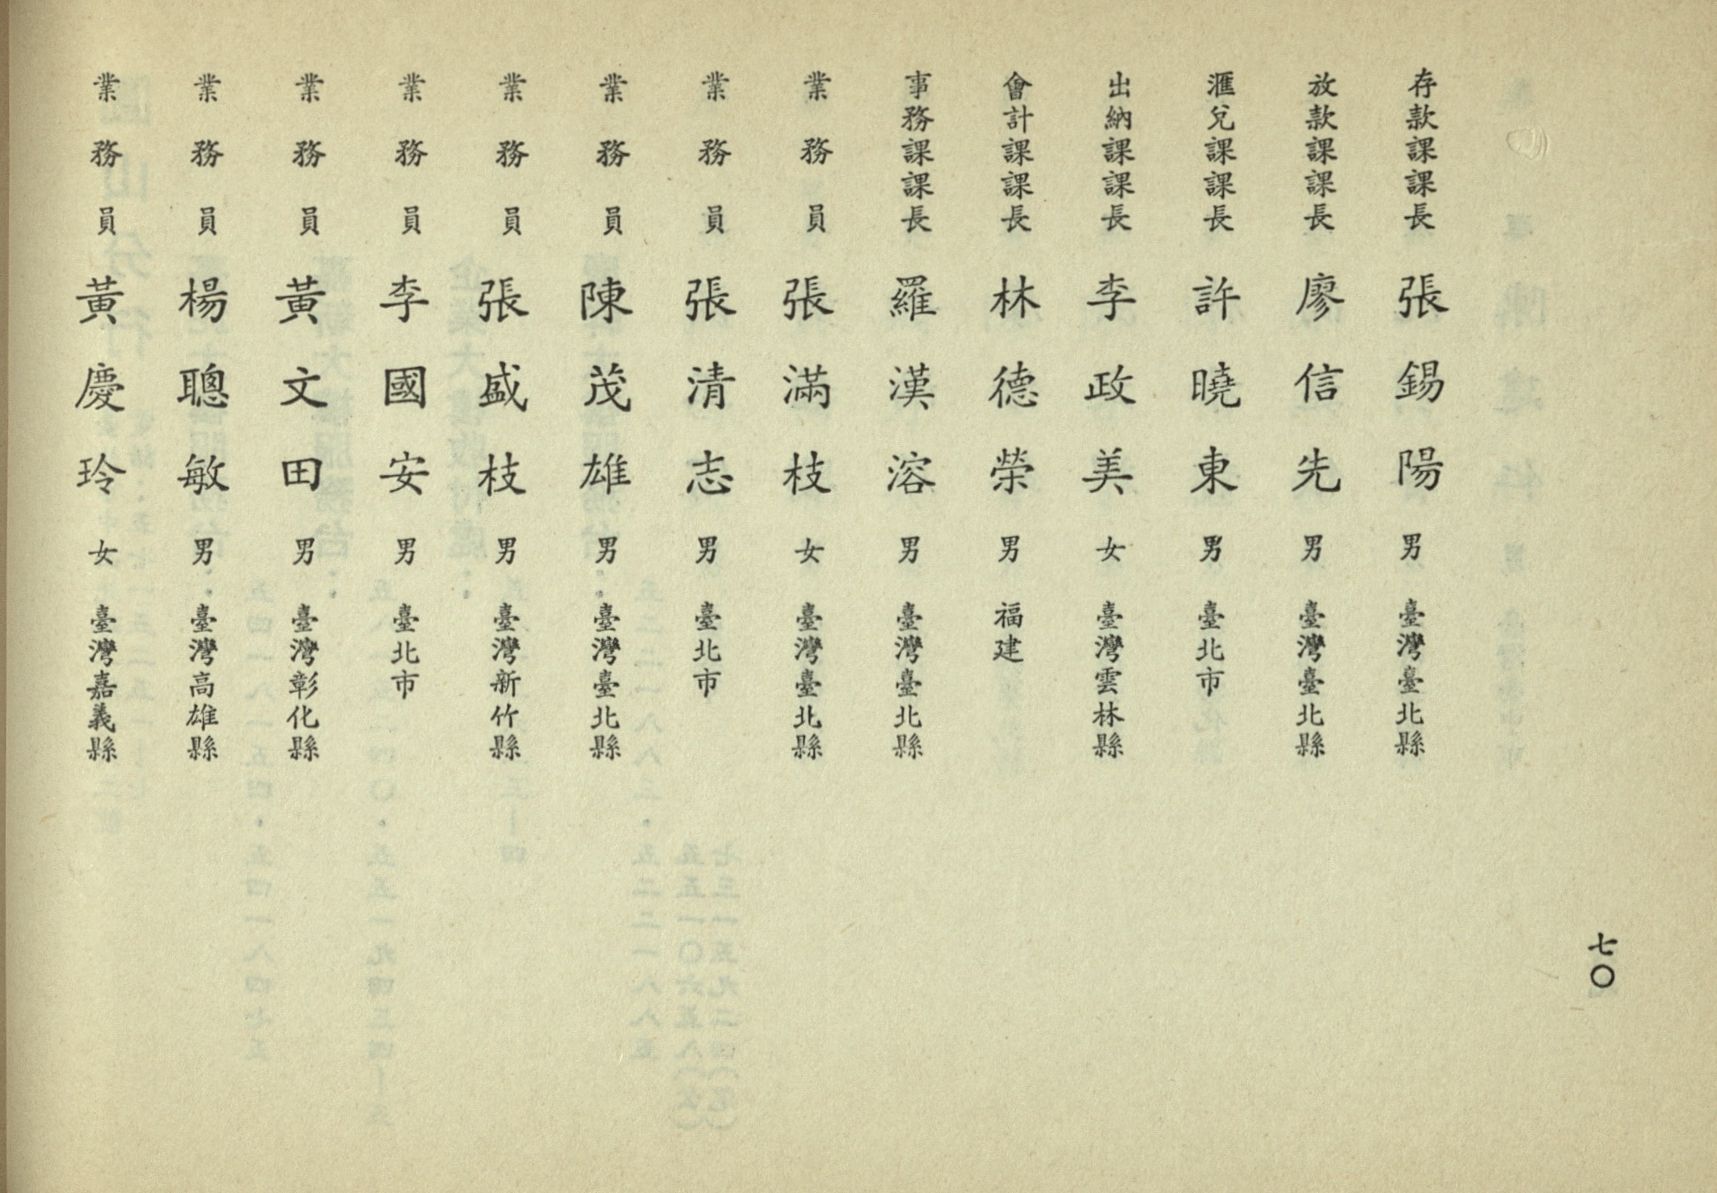 七〇
存款課課長 張錫陽 男 臺灣臺北縣
放款課課長 廖信先 男 臺灣臺北縣
滙兌課課長 許曉東 男 臺北市
出納課課長 李政美 女 臺灣雲林縣
會計課課長 林德榮 男 福建
事務課課長 羅漢溶 男 臺灣臺北縣
業務員 張滿枝 女 臺灣臺北縣
業務員 張清志 男 臺北市
業務員 陳茂雄 男 臺灣臺北縣
業務員 張盛枝 男 臺灣新竹縣
業務員 李國安 男 臺北市
業務員 黃文田 男 臺灣彰化縣
業務員 楊聰敏 男 臺灣高雄縣
業務員 黃慶玲 女 臺灣嘉義縣